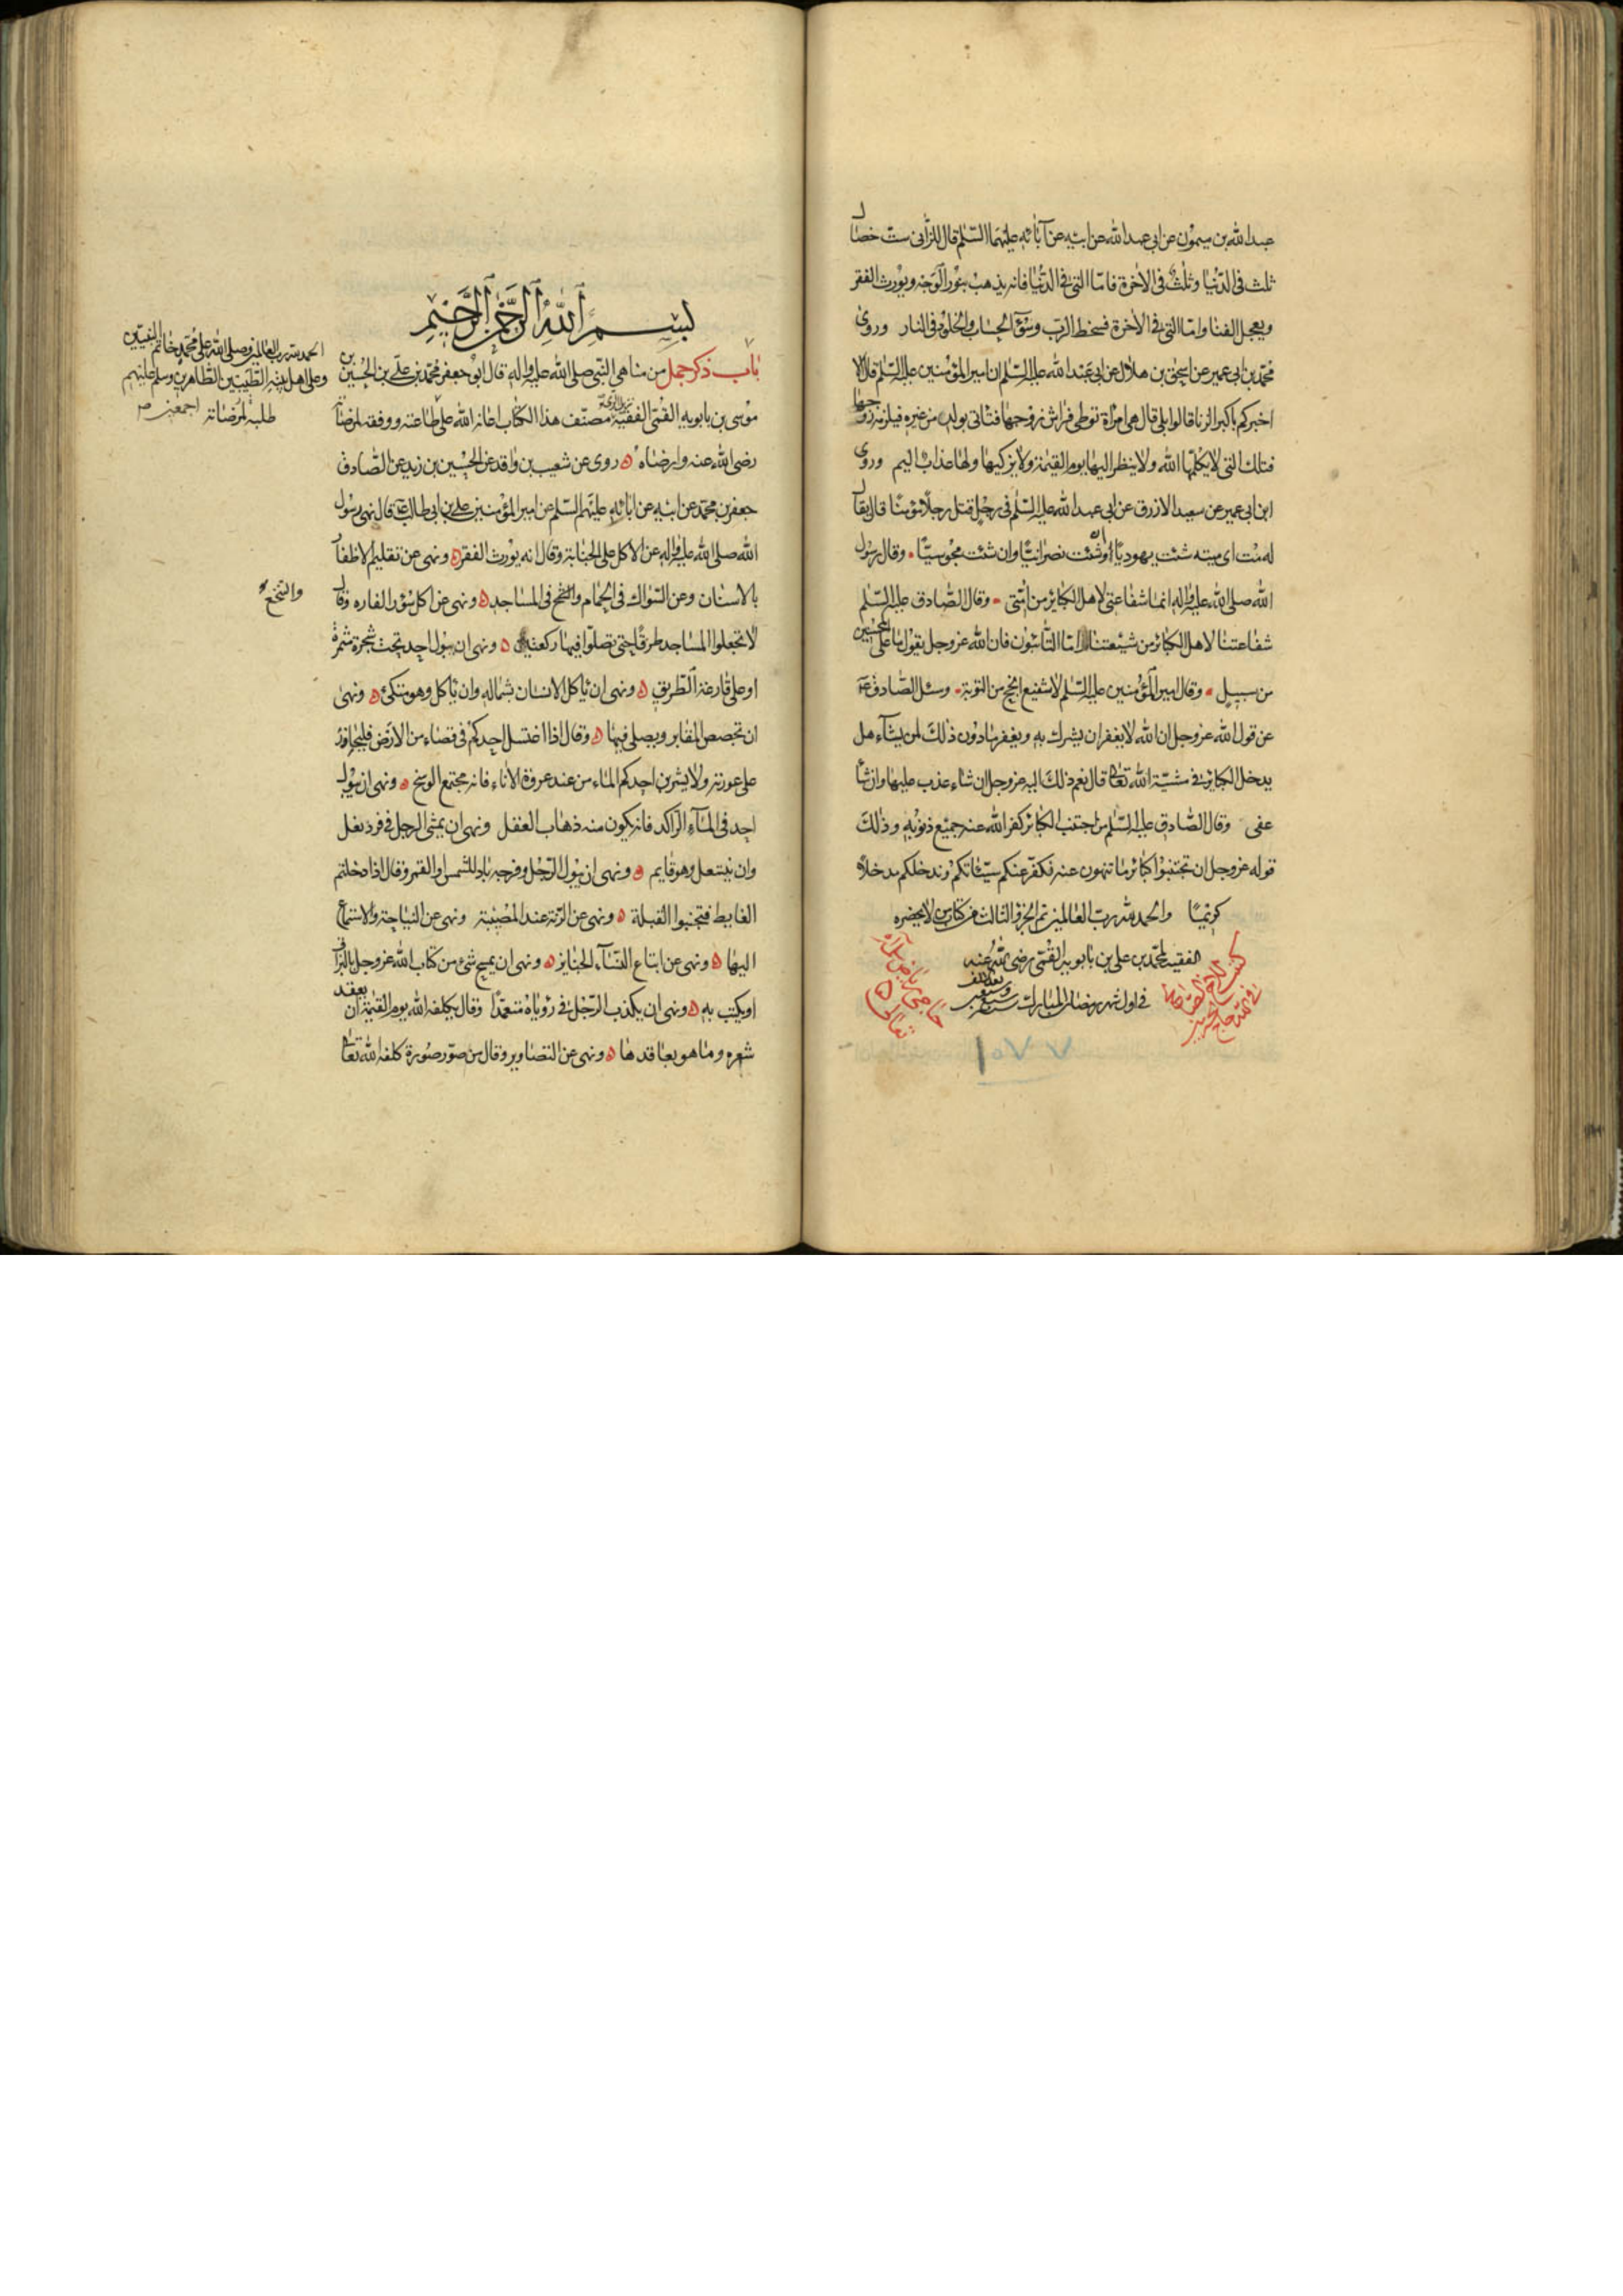 عبدالله بن ميمون عن ابى عبدالله عن ابيه عن آبائه عليهما السّلم قال للزّانى ستّ خصال
ثلث فى الدّنيا وثلث فى الاخرة فامّا التى فى الدّنيا فانه يذهب بنور الوجه ويورث الفقر
ويعجل الفنا وامّا التى فى الاخرة فسخط الربّ وسوٓء الحساب والخلود فى النار وروى
محمّد بن ابى عمير عن اسحق بن هلال عن ابى عبدالله عليه السّلم ان امير المؤمنين عليه السّلم قال الا
اخبركم باكبر الزنا قالوا بلى قال هى امراة توطى فراش زوجها فتاتى بولد من غيره فيلزمه زوجها
فتلك التى لا يكلّمها الله ولا ينظر اليها يوم القيٰمة ولا يزكيها ولها عذاب اليم وروى
ابن ابى عمير عن سعيد الازرق عن ابى عبدالله عليه السّلم فى رجل قتل رجلاً مؤمنًا قال يقال
له مت اى ميته شئت يهوديًا وان شئت نصرانيًا وان شئت مجوسيًا وقال رسول
الله صلى الله عليه واله انما شفاعتى لاهل الكبائر من امّتى وقال الصّادق عليه السّلم
شفاعتنا لاهل الكبائر من شيعتنا امّا التّائبون فان الله عز وجل يقول ما على المحسنين
من سبيل وقال امير المؤمنين عليه السّلم لا شفيع انجح من التوبة وسئل الصّادق ع
عن قول الله عز وجل ان الله لا يغفر ان يشرك به ويغفر مادون ذلك لمن يشآء هل
يدخل الكبائر فى مشيّة الله تعالى قال نعم ذلك اليه عز وجل ان شاء عذب عليها وان شآ
عفى وقال الصّادق عليه السّلم من اجتنب الكبائر كفر الله عنه جميع ذنوبه وذلك
قوله عز وجل ان تجتنبوا كبائر ما تنهون عنه نكفّر عنكم سيّئاتكم وندخلكم مدخلاً
كريمًا والحمد لله ربّ العالمين تم الجزؤ الثالث من كتاب من لا يحضره
الفقيه لمحمّد بن على بن بابويه القمّى رضى الله عنه
فى اول شهر رمضان المبارك سنه سبع وسبعين بعد الالف
١٠٧٧
بسم الله الرّحمن الرّحيم
باب ذكر جمل من مناهى النبى صلى الله عليه واله قال ابو جعفر محمّد بن على بن الحسين بن
موسى بن بابويه القمّى الفقيه مصنّف هذا الكتاب اعانه الله على طاعته ووفقه لمرضاته
رضى الله عنه وارضاه روى عن شعيب بن واقد عن الحسين بن زيد عن الصّادق
جعفر بن محمّد عن ابيه عن ابائه عليهم السّلم عن امير المؤمنين على بن ابى طالب ع قال نهى رسول
الله صلى الله عليه واله عن الاكل على الجنابة وقال انه يورث الفقر ونهى عن تقليم الاظفار
بالاسنان وعن السّواك فى الحمام والتنخع فى المساجد ونهى عن اكل سؤر الفاره وقال
لا تجعلوا المساجد طرقًا حتى تصلّوا فيها ركعتين ونهى ان يبول احد تحت شجرة مثمرة
او على قارعة الطّريق ونهى ان ياكل الانسان بشماله وان ياكل وهو متكئ ونهى
ان تجصص المقابر ويصلى فيها وقال اذا اغتسل احدكم فى فضاء من الارض فليحاذر
على عورته ولا يشربن احدكم الماء من عند عروة الاناء فانه مجتمع الوسخ ونهى ان يبول
احد فى المآء الرّاكد فانه يكون منه ذهاب العقل ونهى ان يمشى الرجل فى فرد نعل
وان ينتعل وهو قايم ونهى ان يبول الرّجل وفرجه باد للشمس او القمر وقال اذا دخلتم
الغايط فتجنبوا القبلة ونهى عن الرنة عند المصيبة ونهى عن النياحة والاستماع
اليها ونهى عن اتباع النسآء الجنايز ونهى ان يمحى شئ من كتاب الله عز وجل بالبزاق
او يكتب به ونهى ان يكذب الرّجل فى رؤياه متعمّدًا وقال يكلفه الله يوم القيٰمة ان يعقد
شعره وما هو بعاقدها ونهى عن التصاوير وقال من صوّر صورة كلفه الله تعالى
الحمد لله رب العالمين وصلى الله على محمّد خاتم النبيّين
وعلى اهل بيته الطّيبين الطّاهرين وسلم عليهم
اجمعين
طلبة لمرضاته
والتنخع